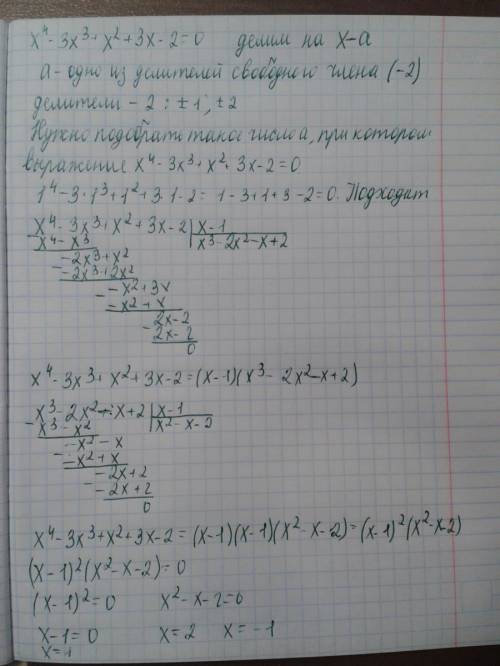 x⁴ - 3x³ + x² + 3x - 2 = 0 делим на x - a
a - одно из делителей свободного члена (-2)
делители - 2 : ± 1 ; ± 2
Нужно подобрать такое число a, при котором
выражение x⁴ - 3x³ + x² + 3x - 2 = 0
1⁴ - 3·1³ + 1² + 3·1 - 2 = 1 - 3 + 1 + 3 - 2 = 0. Подходит
x⁴ - 3x³ + x² + 3x - 2 | x - 1
x⁴ - x³ | x³ - 2x² - x + 2
- 2x³ + x²
- 2x³ + 2x²
- x² + 3x
- x² + x
2x - 2
2x - 2
0
x⁴ - 3x³ + x² + 3x - 2 = (x - 1)(x³ - 2x² - x + 2)
x³ - 2x² - x + 2 | x - 1
x³ - x² | x² - x - 2
- x² - x
- x² + x
- 2x + 2
- 2x + 2
0
x⁴ - 3x³ + x² + 3x - 2 = (x - 1)(x - 1)(x² - x - 2) = (x - 1)²(x² - x - 2)
(x - 1)²(x² - x - 2) = 0
(x - 1)² = 0 x² - x - 2 = 0
x - 1 = 0 x = 2 x = - 1
x = 1